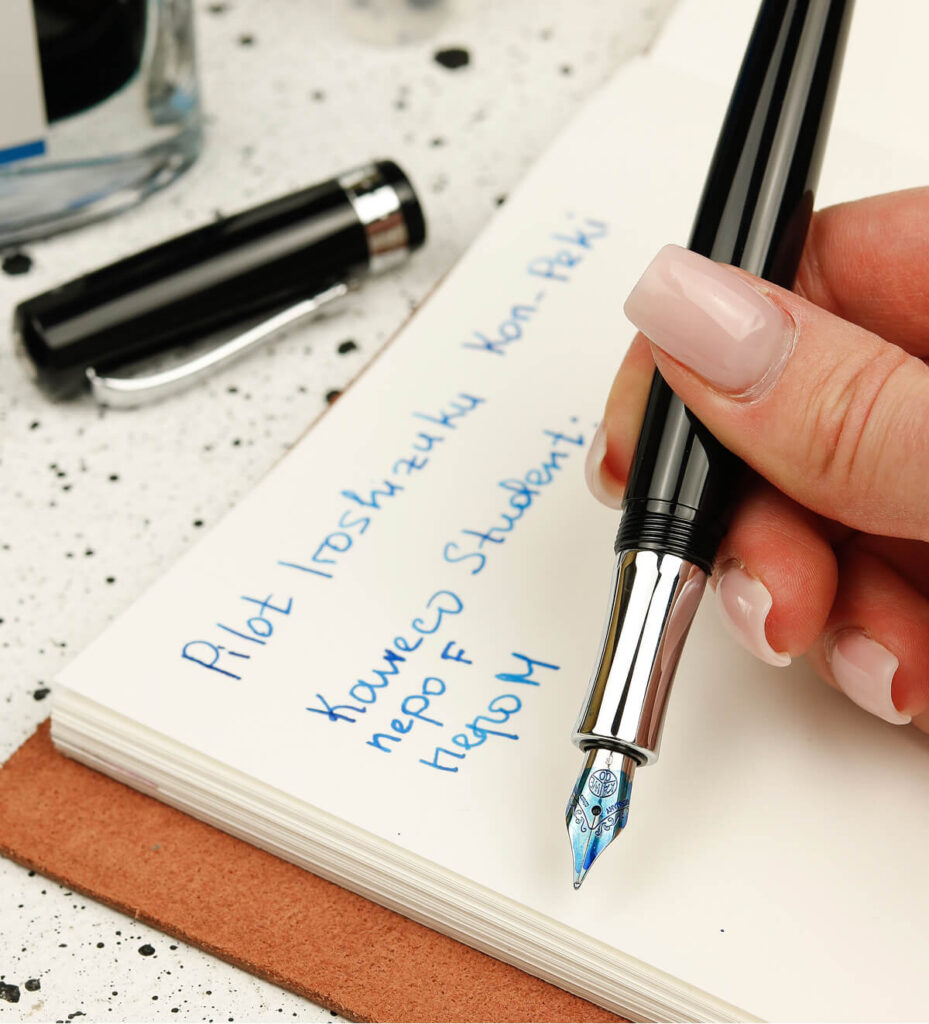 Pilot Iroshizuku Kon-Peki
Kaweco Student.
перо F
перо M